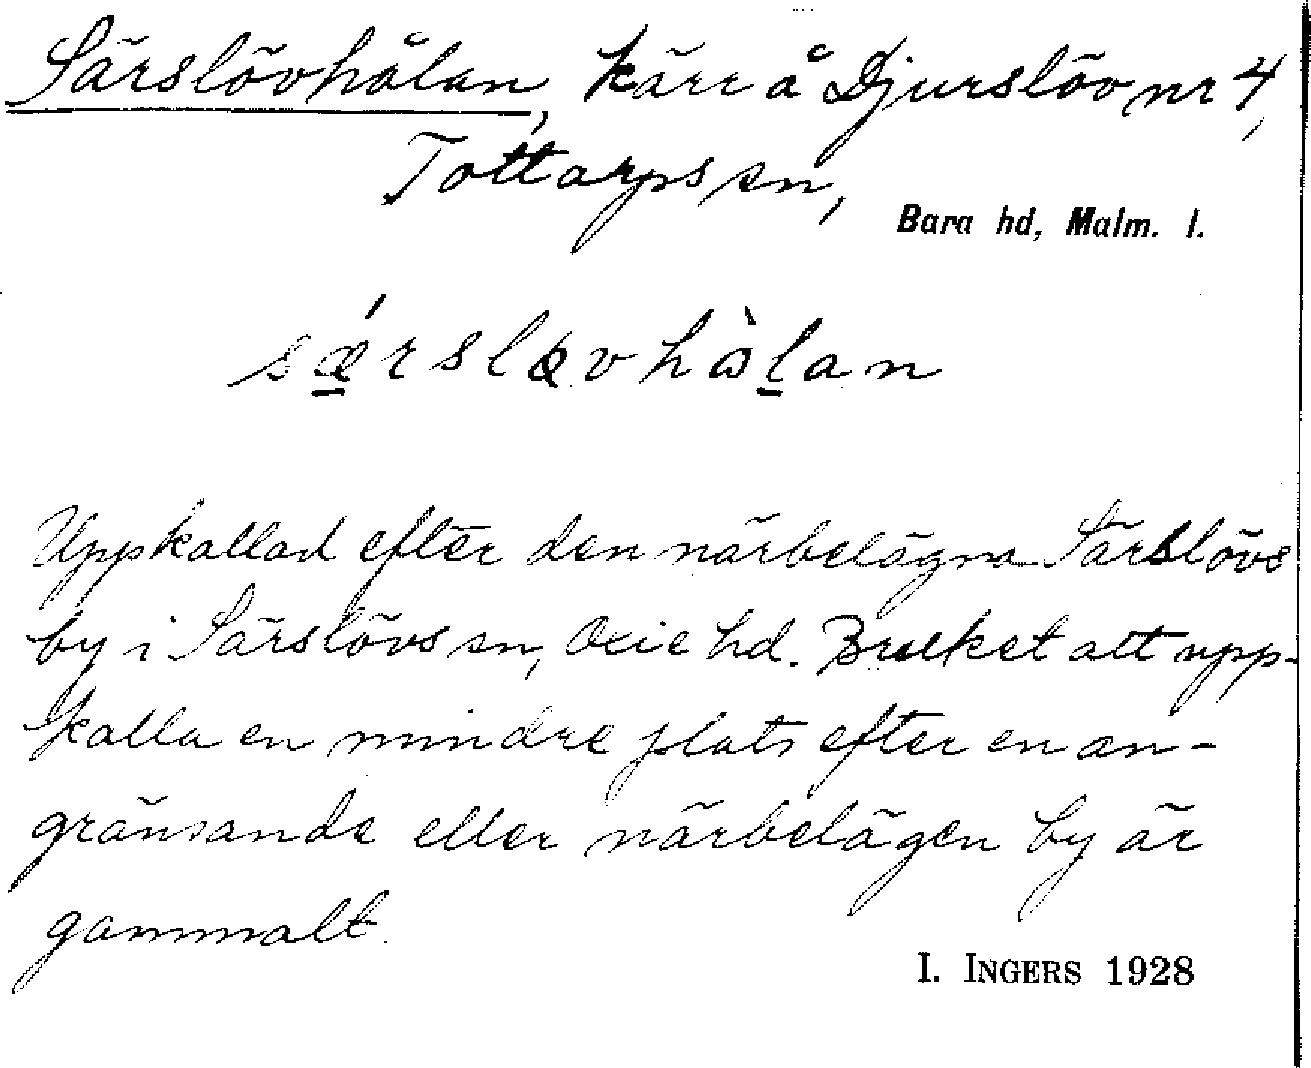 Särslövhålan, kärr å Djurslöv nr 4,
Tottarps sn,
Bara hd, Malm. l.
sǽrsløvhὰlan
Uppkallad efter den närbelägna Särslövs
by i Särslövs sn, Oxie hd. Bruket att upp-
kalla en mindre plats efter en an-
gränsande eller närbelägen by är
gammalt.
I. INGERS 1928